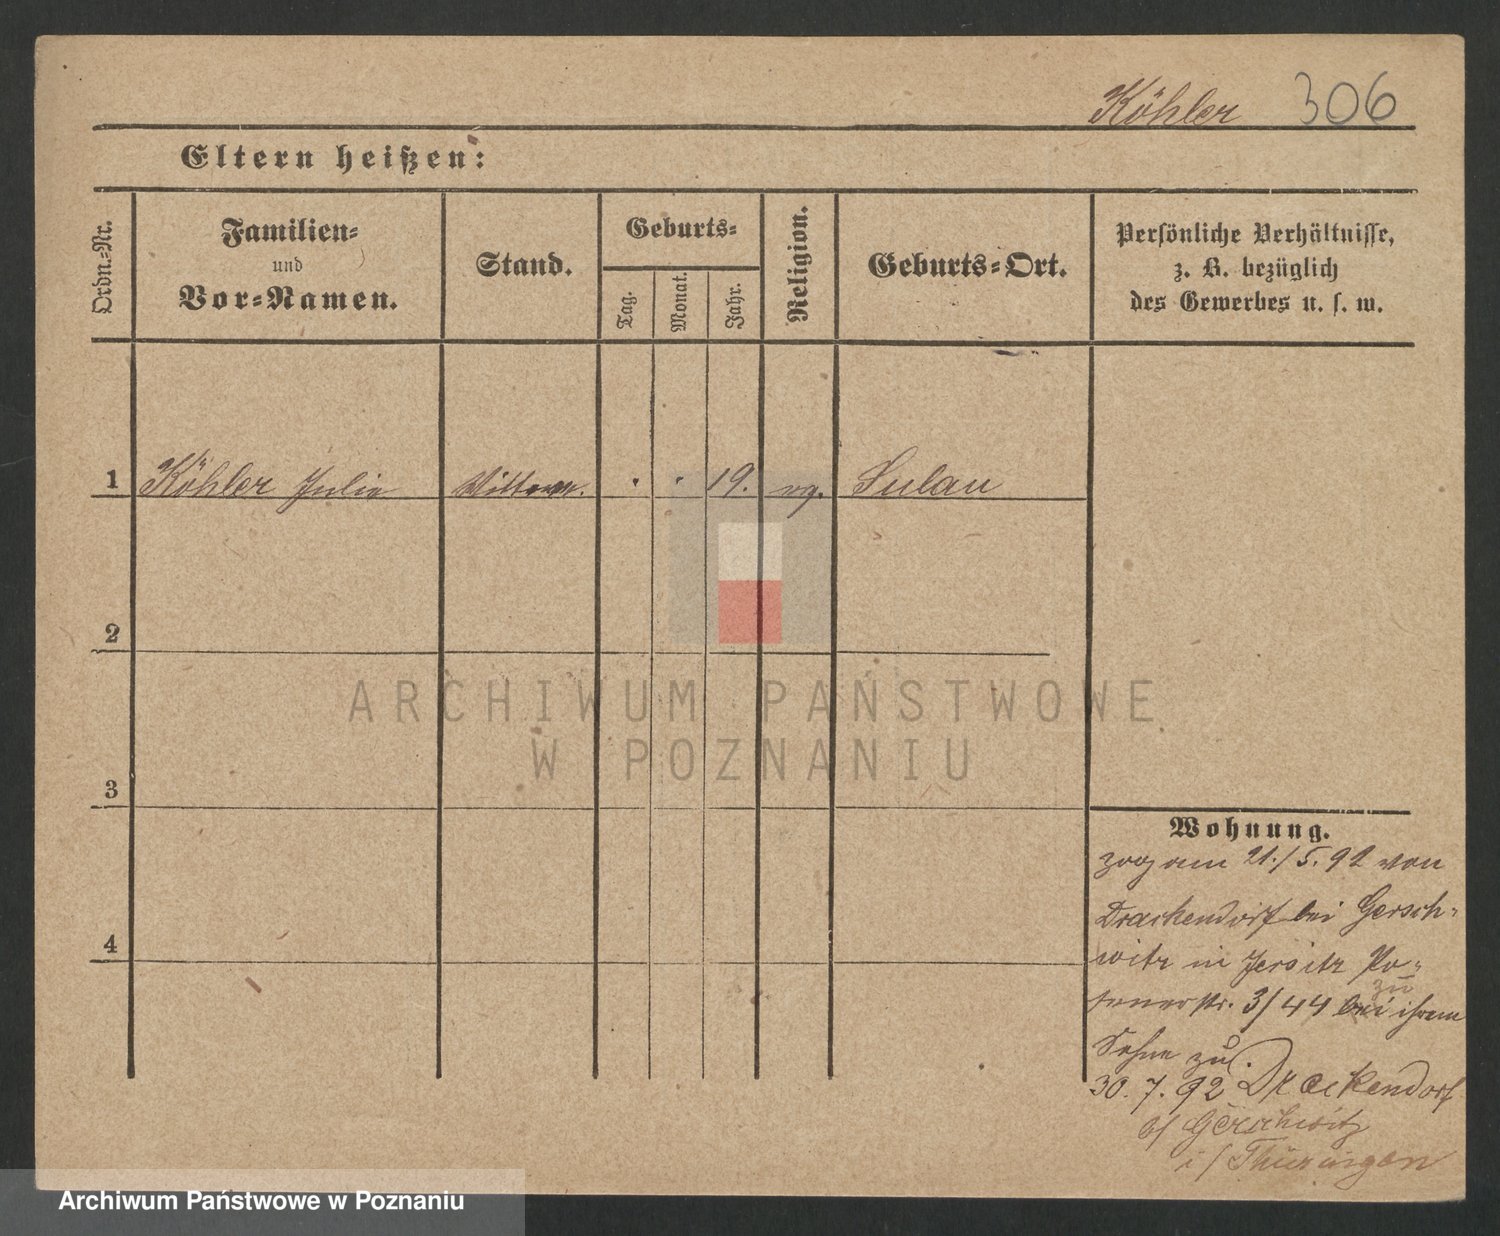 Köhler 306
Eltern heißen:
Ordn.-Nr.
Familien-
und
Vor-Namen.
Stand.
Geburts-
Tag.
Monat.
Jahr.
Religion.
Geburts-Ort.
Persönliche Verhältnisse,
z. B. bezüglich
des Gewerbes u. s. w.
1 Köhler Julie Wittwe. . . 19. ev. Sulau
2
3
4
Wohnung.
zog am 21./5. 92 von
Drackendorf bei Gersch-
witz in Jersitz Po-
senerstr. 3/44 bei zu ihrem
Sohne zu.
30. 7. 92 Drackendorf
b/ Gerschwitz
i/ Thüringen
ARCHIWUM PAŃSTWOWE
W POZNANIU
Archiwum Państwowe w Poznaniu